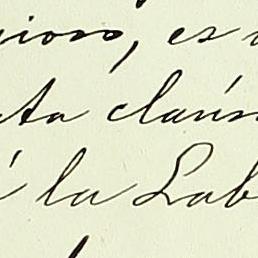 ioso, es
ta claús
á la Lab